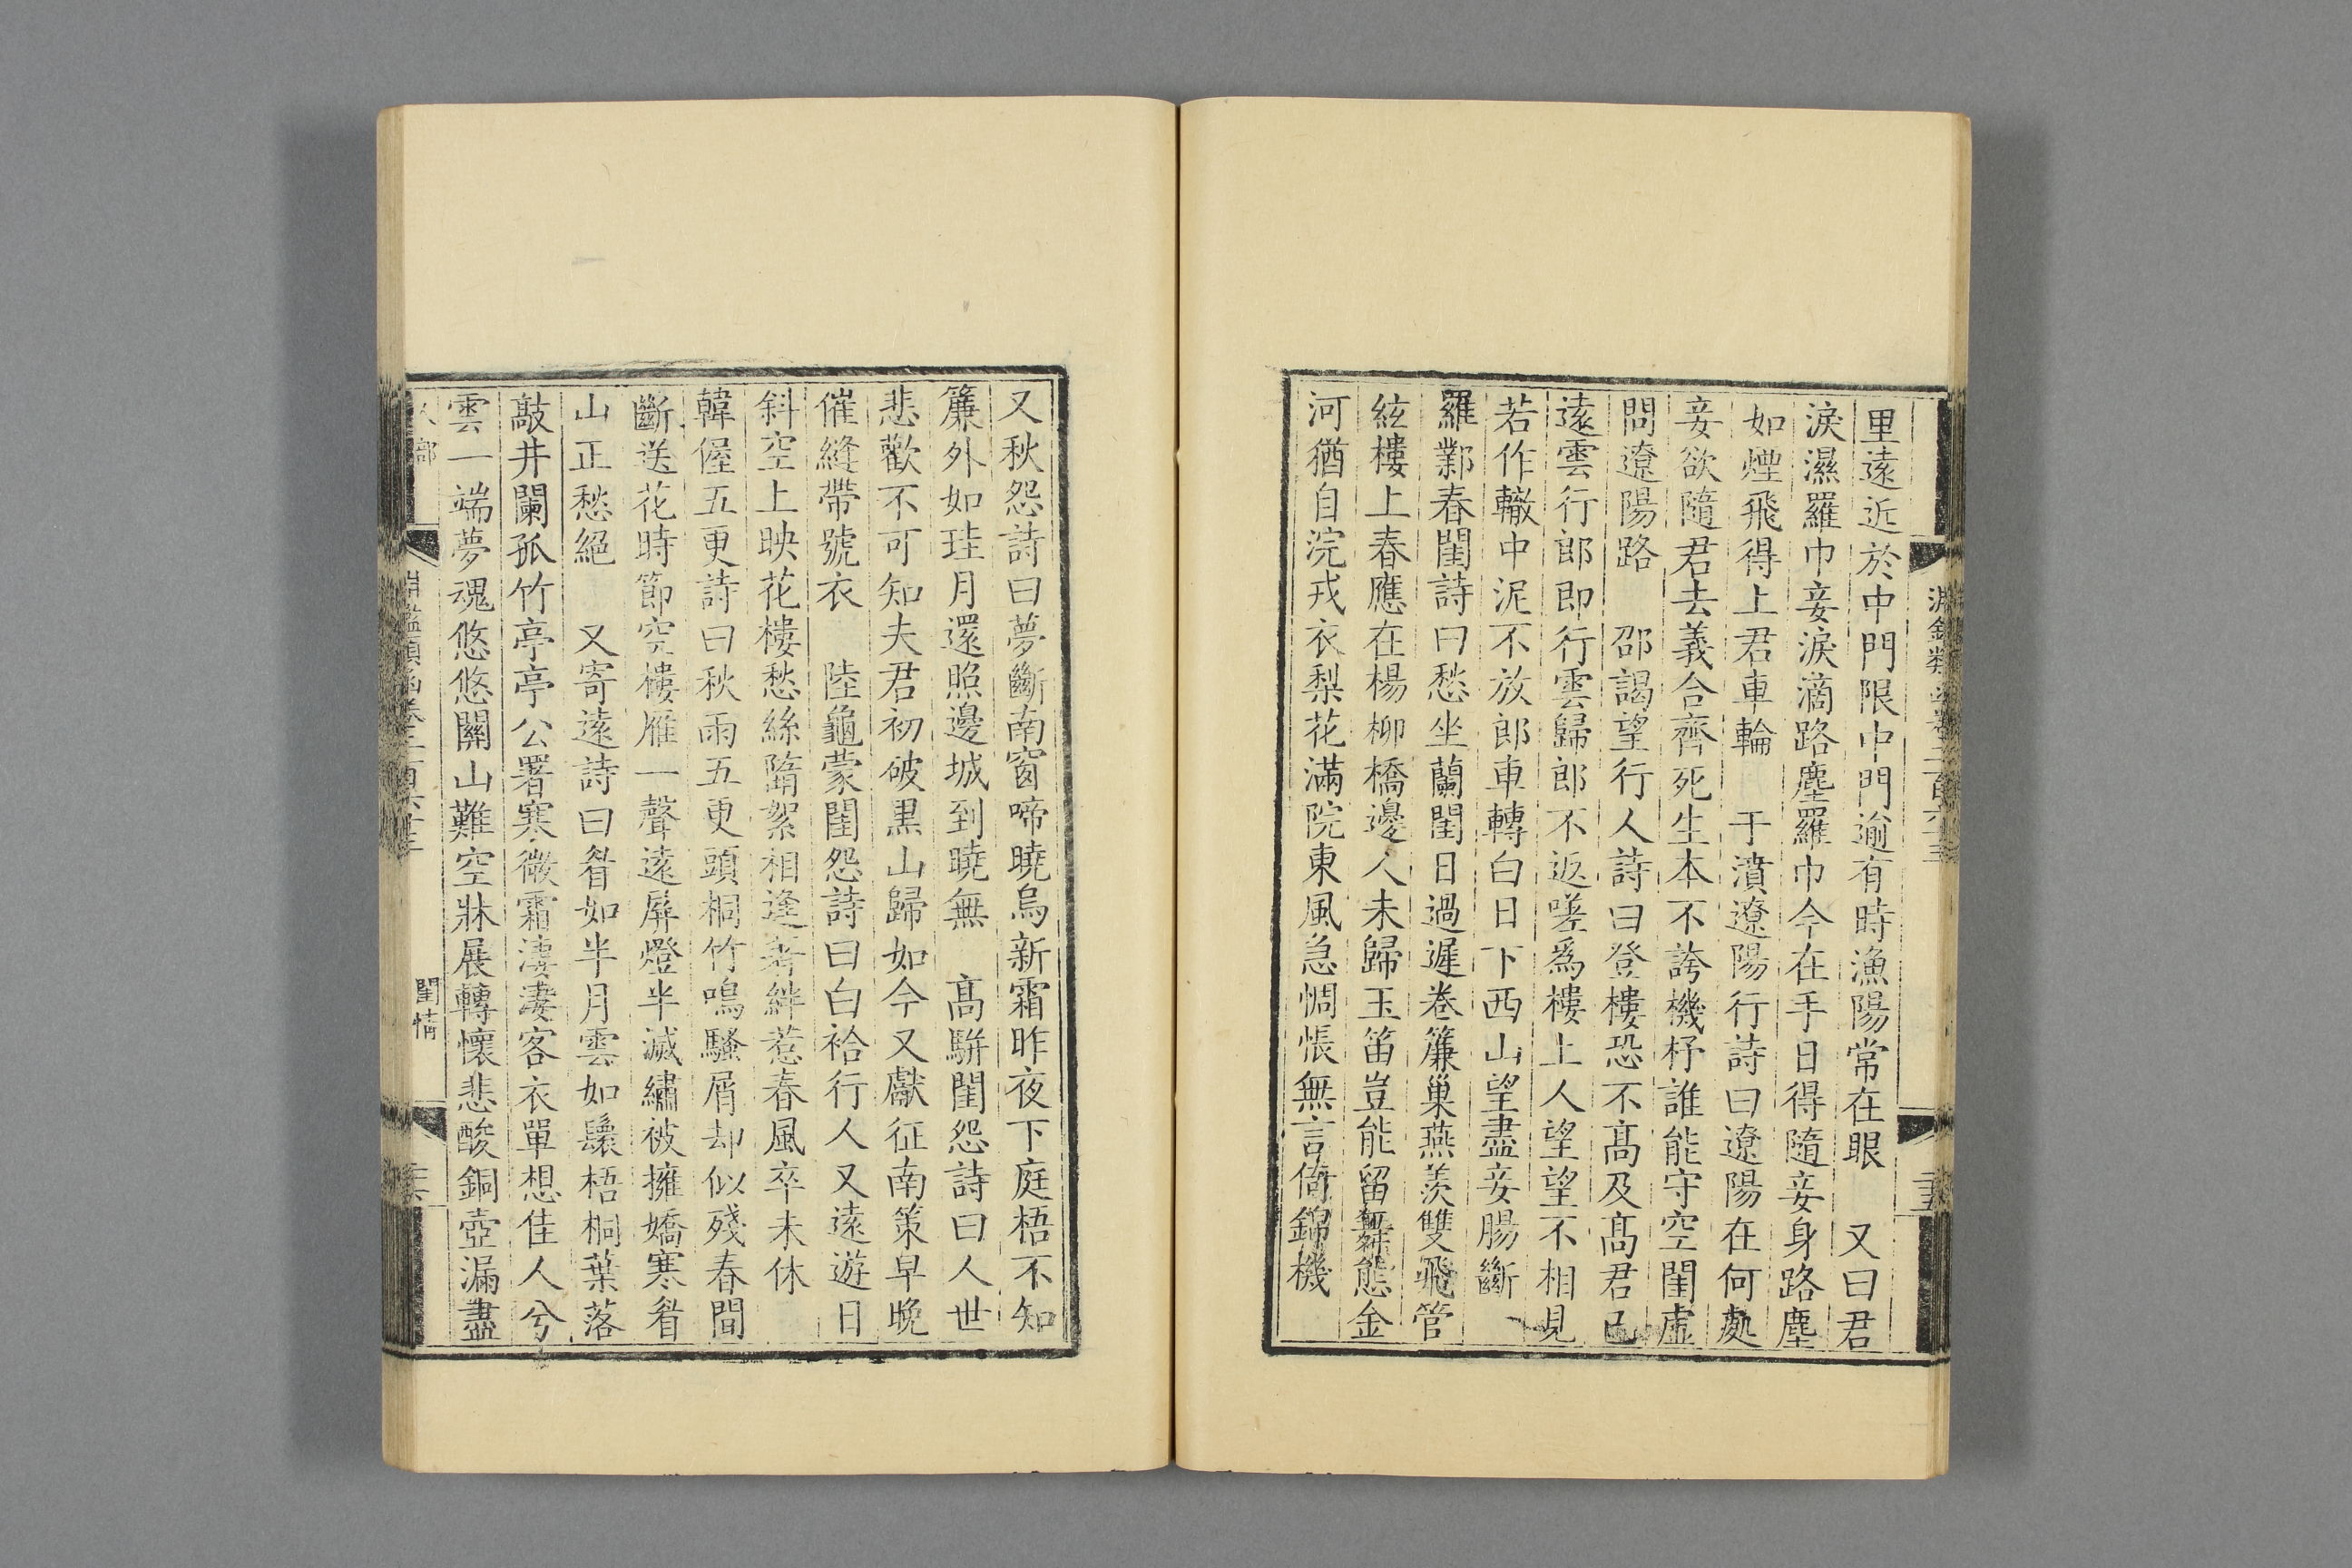 里遠近於中門限中門逾有時漁陽常在眼　又曰君
淚濕羅巾妾淚滴路塵羅巾今在手日得隨妾身路塵
如煙飛得上君車輪　于濆遼陽行詩曰遼陽在何處
妾欲隨君去義合齊死生本不誇機杼誰能守空閨虛
問遼陽路　邵謁望行人詩曰登樓恐不高及高君已
遠雲行郎即行雲歸郎不返嗟爲樓上人望望不相見
若作轍中泥不放郎車轉白日下西山望盡妾腸斷
羅鄴春閨詩曰愁坐蘭閨日過遲卷簾巢燕羨雙飛管
絃樓上春應在楊柳橋邊人未歸玉笛豈能留舞態金
河猶自浣戎衣梨花滿院東風急惆悵無言倚錦機
又秋怨詩曰夢斷南窗啼曉烏新霜昨夜下庭梧不知
簾外如珪月還照邊城到曉無　高駢閨怨詩曰人世
悲歡不可知夫君初破黑山歸如今又獻征南策早晚
催縫帶號衣　陸龜蒙閨怨詩曰白袷行人又遠遊日
斜空上映花樓愁絲隋絮相逢著絆惹春風卒未休
韓偓五更詩曰秋雨五更頭桐竹鳴騷屑却似殘春間
斷送花時節空樓雁一聲遠屏燈半滅繡被擁嬌寒眉
山正愁絕　又寄遠詩曰眉如半月雲如鬟梧桐葉落
敲井闌孤竹亭亭公署寒微霜淒淒客衣單想佳人兮
雲一端夢魂悠悠關山難空牀展轉懷悲酸銅壺漏盡
人部
閨情